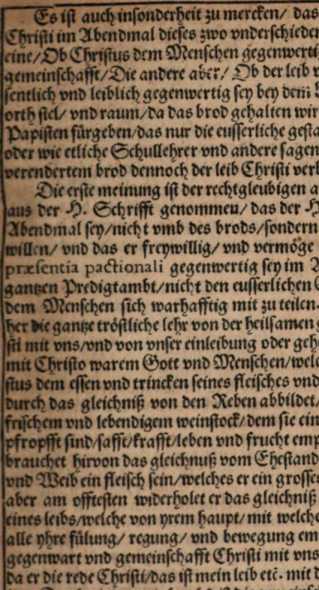 Es ist auch insonderheit zu mercken/ das
Christi im Abendmal dieses zwo vnderschieden
eine/Ob Christus dem Menschen gegenwerti
gemeinschafft/Die andere aber/ Ob der leib v
sentlich vnd leiblich gegenwertig sey bey dem
orth stel/ vnd raum/da das brod gehalten wir
Papisten fürgeben/das nur die eusserliche gesta
oder wie etliche Schullehrer vnd andere sagen
verendertem brod dennoch der leib Christi verl
Die erste meinung ist der rechtgleubigen a
aus der H. Schrifft genommen/ das der H
Abendmal sey/nicht vmb des brods/sondern
willen/ vnd das er freywillig/ vnd vermöge
præsentia pactionali gegenwertig sey im A
gantzen Predigtambt/nicht den eusserlichen
dem Menschen sich warhafftig mit zu teilen.
her die gantze tröstliche lehr von der heilsamen
sti mit vns/vnd von vnser einleibung oder geh
mit Christo warem Gott vnd Menschen/welc
stus dem essen vnd trincken seines fleisches vnd
durch das gleichniß von den Reben abbildet/
frischem vnd lebendigem weinstock/dem sie ein
pfropfft sind/safft/krafft/leben vnd frucht emp
brauchet hirvon das gleichnuß vom Ehestand
vnd Weib ein fleisch sein/welches er ein grosse
aber am offtesten widerholet er das gleichniß
eines leibs/welche von yrem haupt/ mit welch
alle yhre fülung/ regung/ vnd bewegung em
gegenwart vnd gemeinschafft Christi mit vns
da er die rede Christi/das ist mein leib etc. mit d